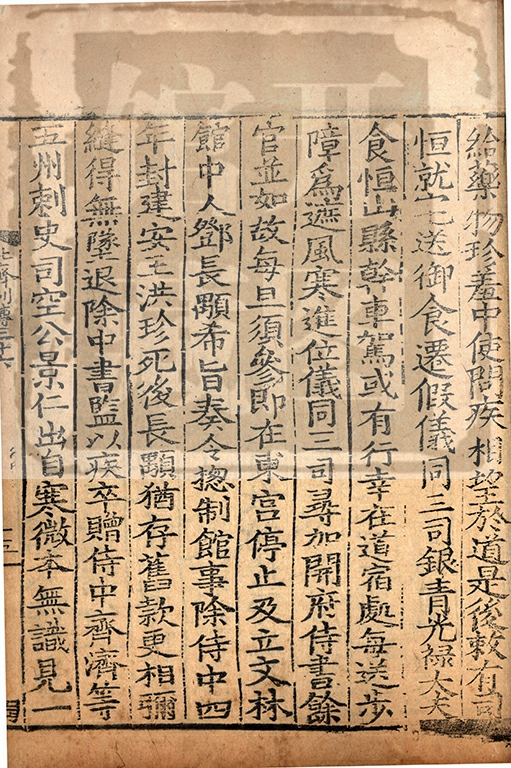 給藥物珍羞中使問疾相望於道是後敕有司
恒就宅送御食遷假儀同三司銀青光祿大夫
食恒山縣幹車駕或有行幸在道宿處每送步
障爲遮風寒進位儀同三司尋加開府侍書餘
官並如故每旦須參即在東宮停止及立文林
館中人鄧長顒希旨奏令摠制館事除侍中四
年封建安王洪珍死後長顒猶存舊款更相彌
縫得無墜退除中書監以疾卒贈侍中齊濟等
五州刺史司空公景仁出自寒微本無識見一
北齊列傳三十六